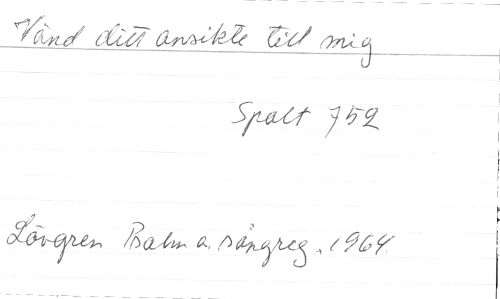 Vänd ditt ansikte till mig
Spalt 752
Lövgren Psalm o. sångreg. 1964